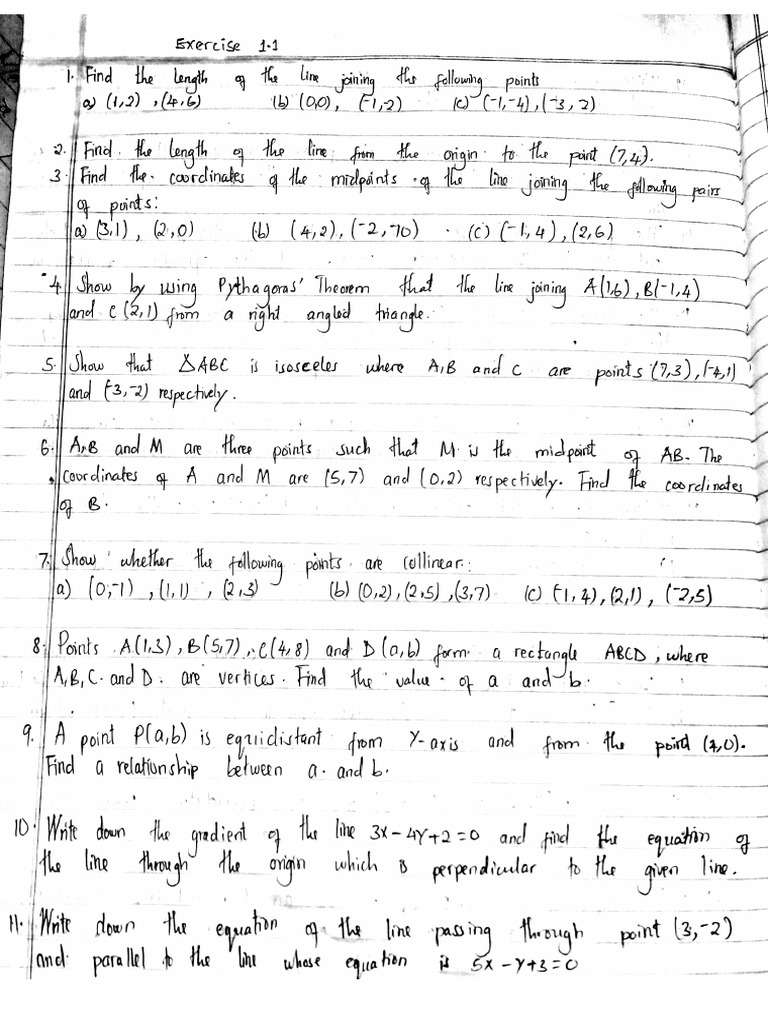 Exercise 1.1
1. Find the length of the line joining the following points
a) (1,2) , (4,6) (b) (0,0), (-1,-2) (c) (-1,-4), (-3,-2)
2. Find the length of the line from the origin to the point (7,4).
3. Find the coordinates of the midpoints of the line joining the following pairs
of points:
a) (3,1) , (2,0) (b) (4,2), (-2,-10) (c) (-1,4), (2,6)
4. Show by using Pythagoras' Theorem that the line joining A(1,6), B(-1,4)
and C(2,1) from a right angled triangle.
5. Show that △ABC is isosceles where A,B and C are points (7,3), (-4,1)
and (-3,-2) respectively.
6. A,B and M are three points such that M is the midpoint of AB. The
coordinates of A and M are (5,7) and (0,2) respectively. Find the coordinates
of B.
7. Show whether the following points are collinear:
a) (0,-1) , (1,1) , (2,3) (b) (0,2), (2,5), (3,7) (c) (-1,4), (2,1), (-2,5)
8. Points A(1,3), B(5,7), C(4,8) and D(a,b) form a rectangle ABCD, where
A,B,C and D are vertices. Find the value of a and b.
9. A point P(a,b) is equidistant from Y-axis and from the point (4,0).
Find a relationship between a and b.
10. Write down the gradient of the line 3x-4y+2=0 and find the equation of
the line through the origin which is perpendicular to the given line.
11. Write down the equation of the line passing through point (3,-2)
and parallel to the line whose equation is 5x-y+3=0